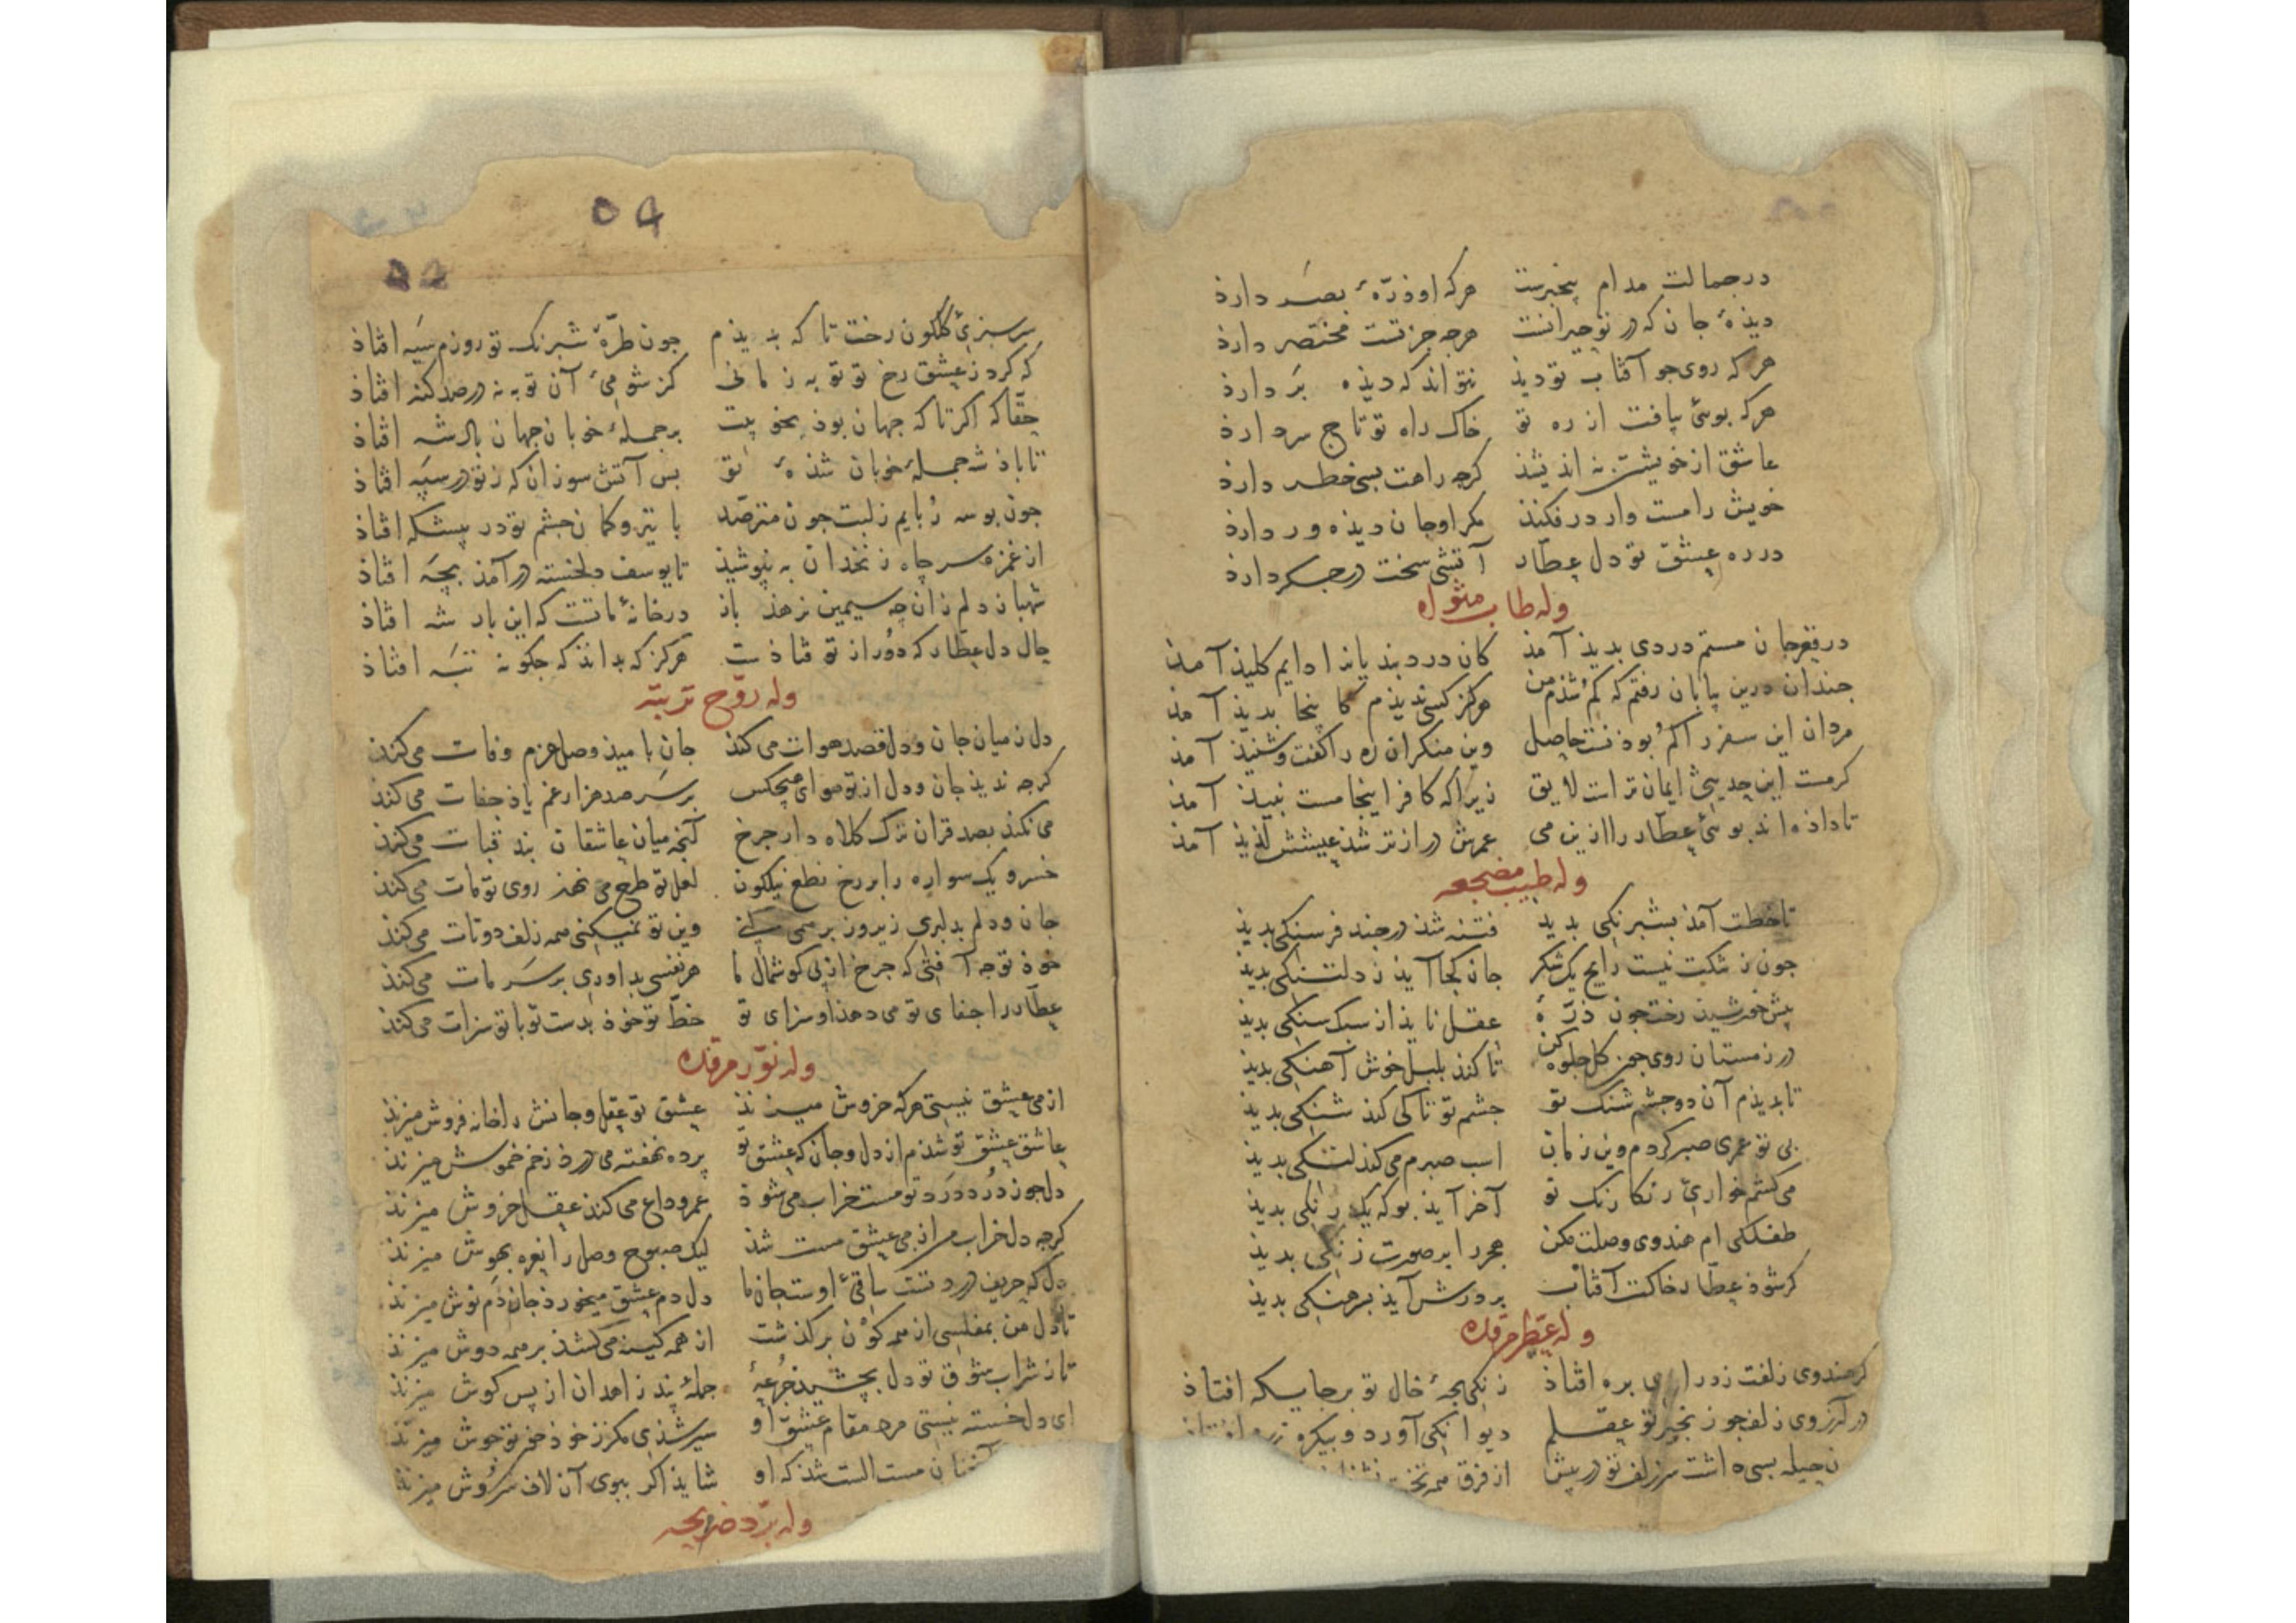 در جمالت مدام بیخبرست هرکه او ذرّهٔ بصَر دارذ
دیذهٔ جان که در تو حیرانست هرجه جز تست مختصر دارذ
هرکه روی جو آفتاب تو دیذ نتواند که دیذه بَر دارذ
هرکه بوئی بیافت از ره تو خاک راه تو تاج سر دارذ
عاشق از خویشتن نه اندیشذ کرجه راهت بسی خطر دارذ
خویش را مست وار درفکنذ مکر او جان دیذه ور دارذ
در ره عشق تو دل عطّار آتشی سخت در جکر دارذ
وله طاب مثواه
در قعر جان مستم دردی بدیذ آمذ کان درد بندیانرا دایم کلیذ آمذ
جندان درین بیابان رفتم که کم شذم من هرکز کسی ندیذم کا ینجا بدیذ آمذ
مردان این سفر را کم بوذنست حاصل وین منکران ره را کفت و شنیذ آمذ
کرمست این حدیثی ایمان تراست لایق زیراکه کافر اینجا مست نبیذ آمذ
تا داذه اند بوئی عطّار را ازین می عمرش درازتر شذ عیشش لذیذ آمذ
وله طیب مضجعه
تا خطت آمذ بشبرنکی بدید فتنه شذ در جند فرسنکی بدیذ
جون ز تنکت نیست رایج یک شکر جان کجا آیذ ز دلتنکی بدیذ
پیش خورشیذ رخت جون ذرّهٔ عقل نایذ از سبک سنکی بدیذ
در زمستان روی جون کل جلوه کن تا کند بلبل خوش آهنکی بدیذ
تا بدیذم آن دو جشم شنک تو جشم تو تا کی کند شنکی بدیذ
بی تو عمری صبر کردم وین زمان اسب صبرم می کند لنکی بدیذ
می کشم خواریٔ رنکا رنک تو آخر آیذ بوکه یک رنکی بدیذ
طفلکی ام هندوی وصلت مکن هجر را بر صورت زنکی بدیذ
کر شوذ عطّار خاکت آفتاب بر درش آیذ بر هنکی بدیذ
وله عطّر مرقده
کر هندوی زلفت ز درازی بره افتاذ زنکی بجهٔ خال تو بر جایکه افتاذ
در آرزوی زلف جو زنجیر تو عقلم دیوانکی آورد و بیکره
حیله بسی داشت سر زلف تو در پیش از فرق همه تخت
٥٤
سرسبزیٔ کلکون رخت تا که بدیذم جون طرّهٔ شبرنک تو روزم سیَه افتاذ
که کرد ز عشق رخ تو توبه زمانی کز شومیٔ آن توبه نه در صد کنه افتاذ
حقّا که اکر تا که جهان بوذ بخوبیت بر جملهٔ خوبان جهان باذشه افتاذ
تا باذشه جملهٔ خوبان شذهٔ تو بس آتش سوزان که ز تو در سپه افتاذ
جون بوسه رُبایم ز لبت جون مترصّد با تیر و کمان جشم تو در پیشکه افتاذ
از غمزه سر چاه زنخدان به نپوشیذ تا یوسف دلخسته درآمذ بچَه افتاذ
شهباز دلم زان چه سیمین نرهذ باز در خانهٔ ماتست که این بار شه افتاذ
حال دل عطّار که دُور از تو فتاذست هرکز که بدانذ که جکونه تبَه افتاذ
وله روّح تربته
دل ز میان جان و دل قصد هوات می کند جان بامیذ وصل عزم وفات می کند
کرجه ندیذ جان و دل از تو هوای هیچکس بر سَر صد هزار غم یاذ جفات می کند
می نکند بصد قران ترک کلاه دار جرخ آنجه میان عاشقان بند قبات می کند
خسرو یک سواره را بر رخ نطع نیلکون لعل تو طرح می نهذ روی تو مات می کند
جان و دلم بدلبری زیر و زبر همی وین تو نمیکنی همه زلف دوتات می کند
خوذ تو جه آفتی که جرخ از پی کوشمال ما هر نفسی بداوری بر سَر مات می کند
عطّار را جفای تو می دهذ او سزای تو خطّ تو خوذ بدست تو با تو سزات می کند
وله نوّر مرقده
از می عشق نیستی هرکه خروش میزنذ عشق تو عقل و جانش را خانه فروش میزنذ
عاشق عشق تو شذم از دل و جان که عشق تو پرده نهفته می درذ زخم خموش میزنذ
دل جو ز دُرد درد تو مست خراب می شوذ عمر وداع می کند عقل خروش میزنذ
کرجه دل خراب من از می عشق مست شذ لیک صبوح وصل را نعره بهوش میزنذ
دل که حریف درد تست ساقیٔ اوست جان ما دل دم عشق میخورذ جان دَم نوش میزنذ
تا دل من بمفلسی از همه کَوْن برکذشت از همه کینه می کشذ بر همه دوش میزنذ
تا ز شراب شوق تو دل بچشیذ جُرعهٔ جملهٔ پند زاهدان از پس کوش میزنذ
ای دل خسته نیستی مرد مقام عشق او سیر شذی مکر ز خوذ خوش میزنذ
مست الست شذ که او شایذ اکر ببوی آن لاف سروش میزنذ
وله برّد ضریحه